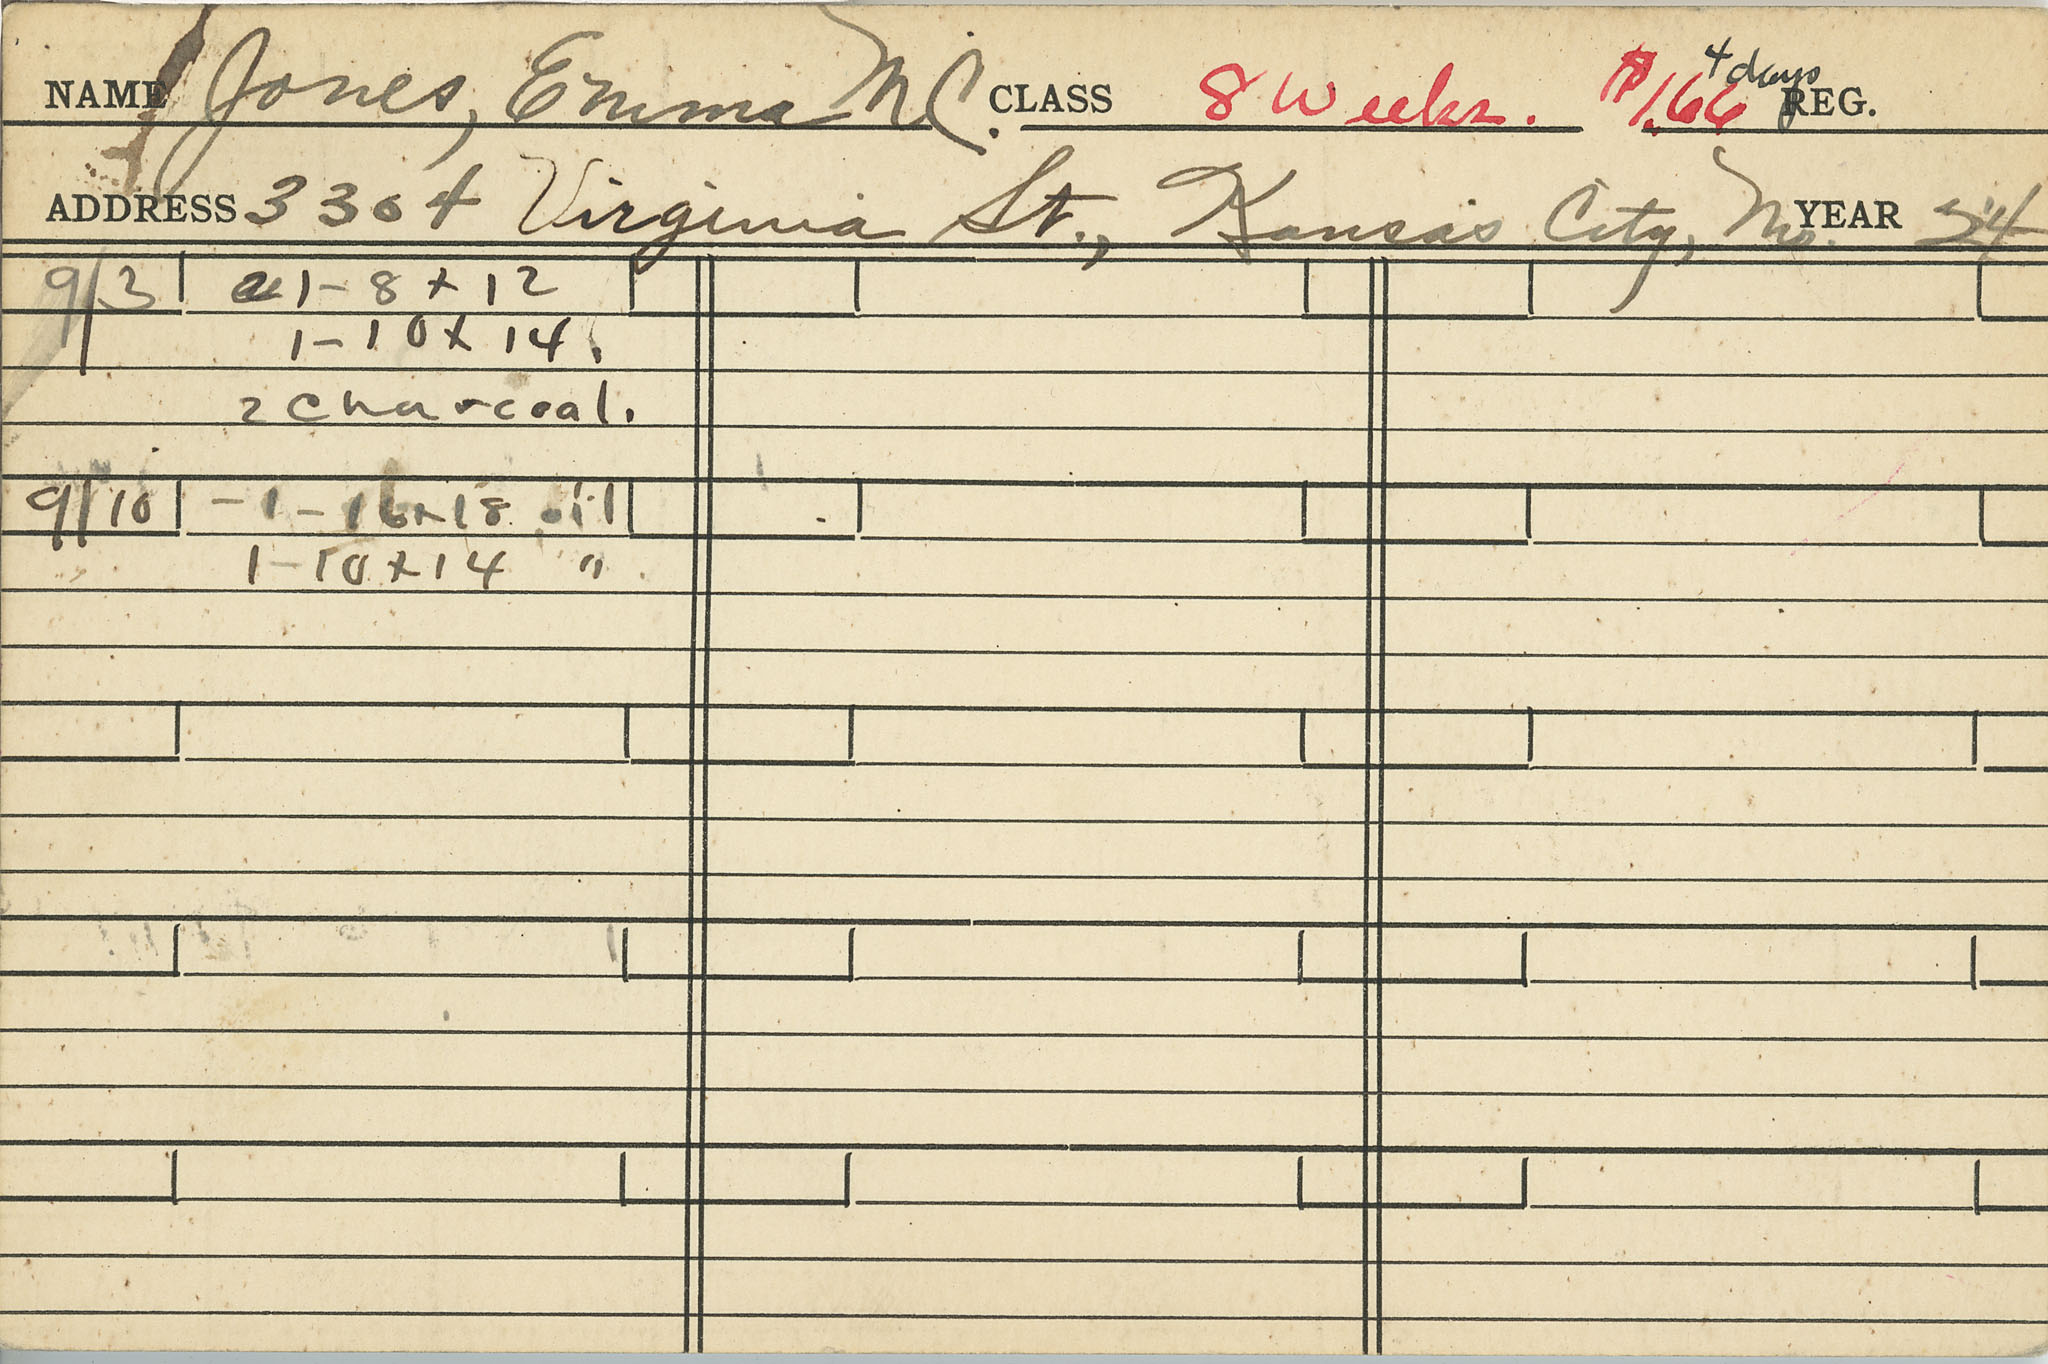 NAME Jones, Emma M C. CLASS 8 Weeks. $1.66 4 days REG.
ADDRESS 3304 Virginia St., Kansas City, Mo. YEAR 24
9/3 1-8x12
1-10x14.
2 charcoal.
9/10 -1-16x18 oil
1-10x14 "